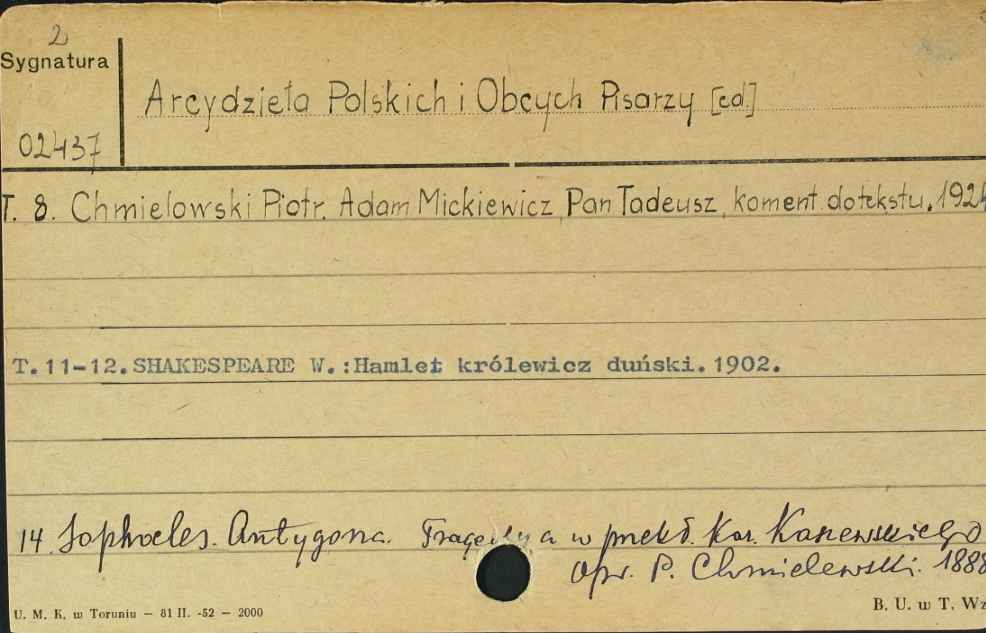 2
Sygnatura
Arcydzieła Polskich i Obcych Pisarzy [cd.]
02437
T. 8. Chmielowski Piotr. Adam Mickiewicz, Pan Tadeusz, koment. do tekstu. 1924
T. 11-12. SHAKESPEARE W.: Hamlet królewicz duński. 1902.
14 Sophocles. Antygona. Tragedya w przekł. Kaz. Kaszewskiego
opr. P. Chmielewski. 1888
U. M. K. w Toruniu — 81 II. -52 — 2000
B. U. w T. Wz